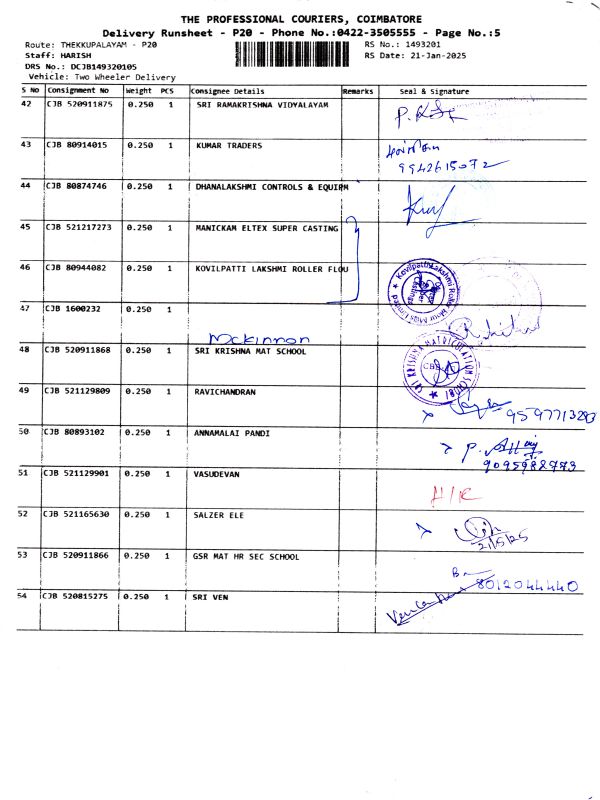 THE PROFESSIONAL COURIERS, COIMBATORE
Delivery Runsheet - P20 - Phone No.:0422-3505555 - Page No.:5
Route: THEKKUPALAYAM - P20 RS No.: 1493201
Staff: HARISH RS Date: 21-Jan-2025
DRS No.: DCJB149320105
Vehicle: Two Wheeler Delivery
S No Consignment No Weight PCS Consignee Details Remarks Seal & Signature
42 CJB 520911875 0.250 1 SRI RAMAKRISHNA VIDYALAYAM
43 CJB 80914015 0.250 1 KUMAR TRADERS
9942615072
44 CJB 80874746 0.250 1 DHANALAKSHMI CONTROLS & EQUIPM
45 CJB 521217273 0.250 1 MANICKAM ELTEX SUPER CASTING
46 CJB 80944082 0.250 1 KOVILPATTI LAKSHMI ROLLER FLOU
47 CJB 1600232 0.250 1
Mckinnon
48 CJB 520911868 0.250 1 SRI KRISHNA MAT SCHOOL
SRI KRISHNA MATRICULATION SCHOOL
49 CJB 521129809 0.250 1 RAVICHANDRAN
50 CJB 80893102 0.250 1 ANNAMALAI PANDI
51 CJB 521129901 0.250 1 VASUDEVAN
52 CJB 521165630 0.250 1 SALZER ELE
21/5/25
53 CJB 520911866 0.250 1 GSR MAT HR SEC SCHOOL
8012044440
54 CJB 520815275 0.250 1 SRI VEN